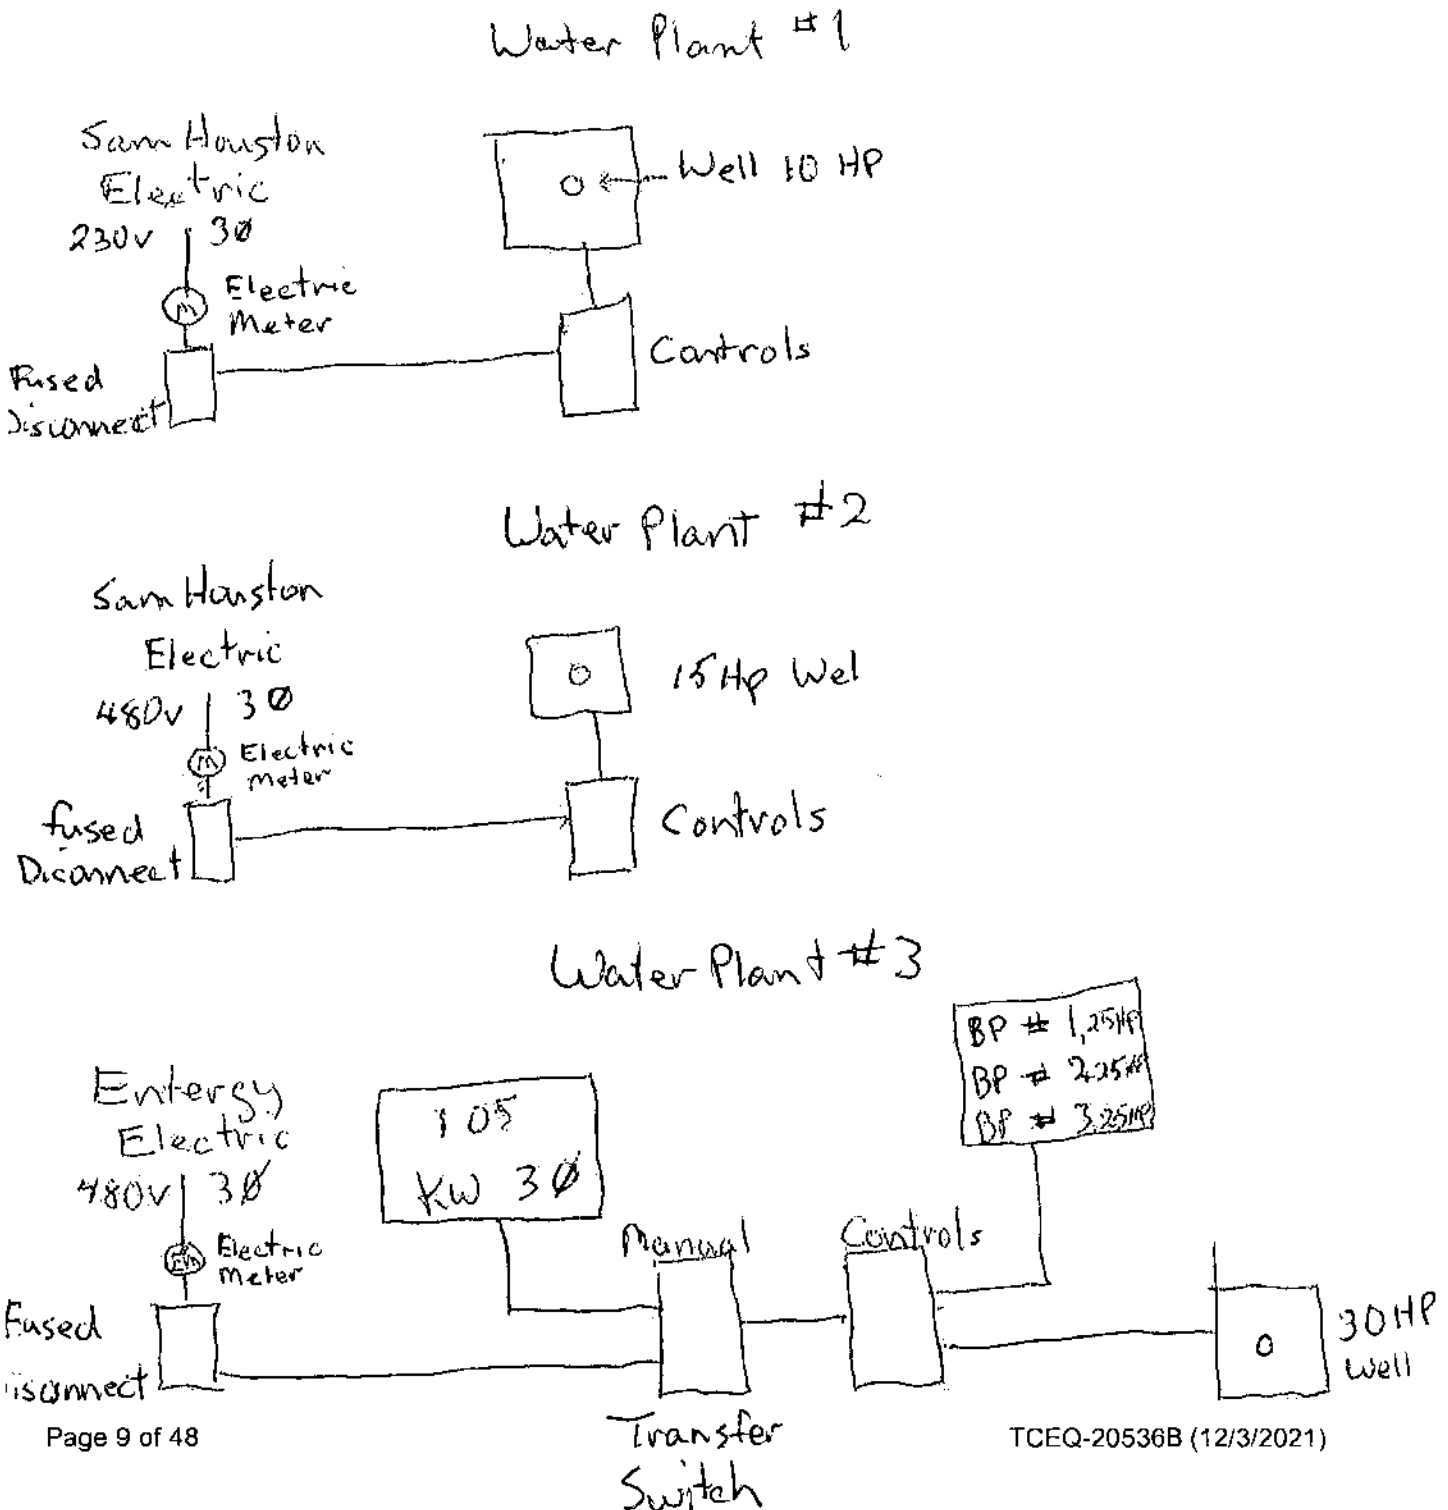 Water Plant #1
Sam Houston
Electric
230v 3Ø
Electric
Meter
M
Fused
Disconnect
Well 10 HP
Controls
Water Plant #2
Sam Houston
Electric
480v 3Ø
M
Electric
meter
fused
Diconnect
15 Hp Wel
Controls
Water Plant #3
Entergy
Electric
480v 3Ø
Electric
Meter
Fused
isconnect
105
KW 3Ø
Manual
Transfer
Switch
Controls
BP # 1, 25HP
BP # 2 25HP
BP # 3 25HP
30 HP
Well
Page 9 of 48
TCEQ-20536B (12/3/2021)